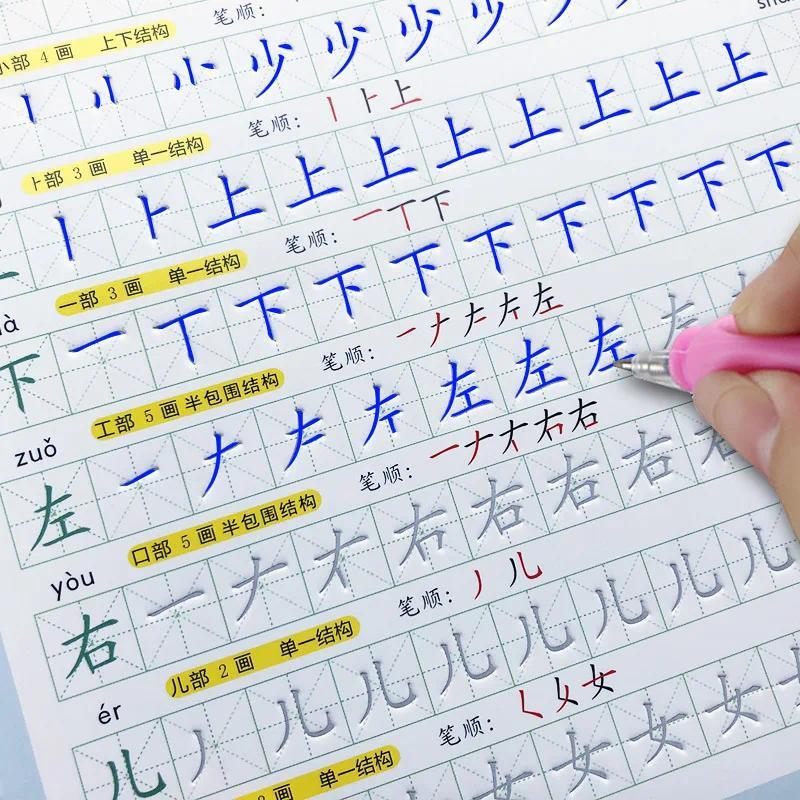 小部 4 画 上下结构 笔顺:
丨 小 少 少 少 少 少
⺊部 3 画 单一结构 笔顺: 丨 ⺊ 上
丨 ⺊ 上 上 上 上 上 上 上 上
一部 3 画 单一结构 笔顺: 一 丅 下
下 一 丅 下 下 下 下 下 下 下 下
工部 5 画 半包围结构 笔顺: 一 ナ 左
zuǒ
左 一 ナ 左 左 左 左
口部 5 画 半包围结构 笔顺: 一 ナ 右 右
yòu
右 一 ナ 右 右 右 右 右
儿部 2 画 单一结构 笔顺: 丿 儿
ér
儿 丿 儿 儿 儿 儿 儿 儿 儿
3 画 单一结构 笔顺: 𡿨 女 女
女 女 女 女